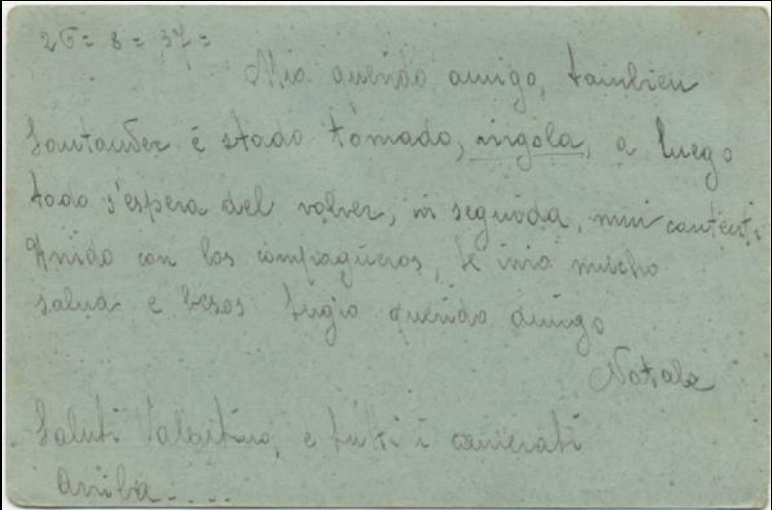 26 = 8 = 37 =
Mio querido amigo, tambien
Santander é stado tomado, , a luego
todo s'espera del volver, in seguida, mui contenti
Unido con los compagneros, te mucho
salud e besos tugio querido amigo
Natale
Saluti Valentino, e tutti i camerati
Arriba.....